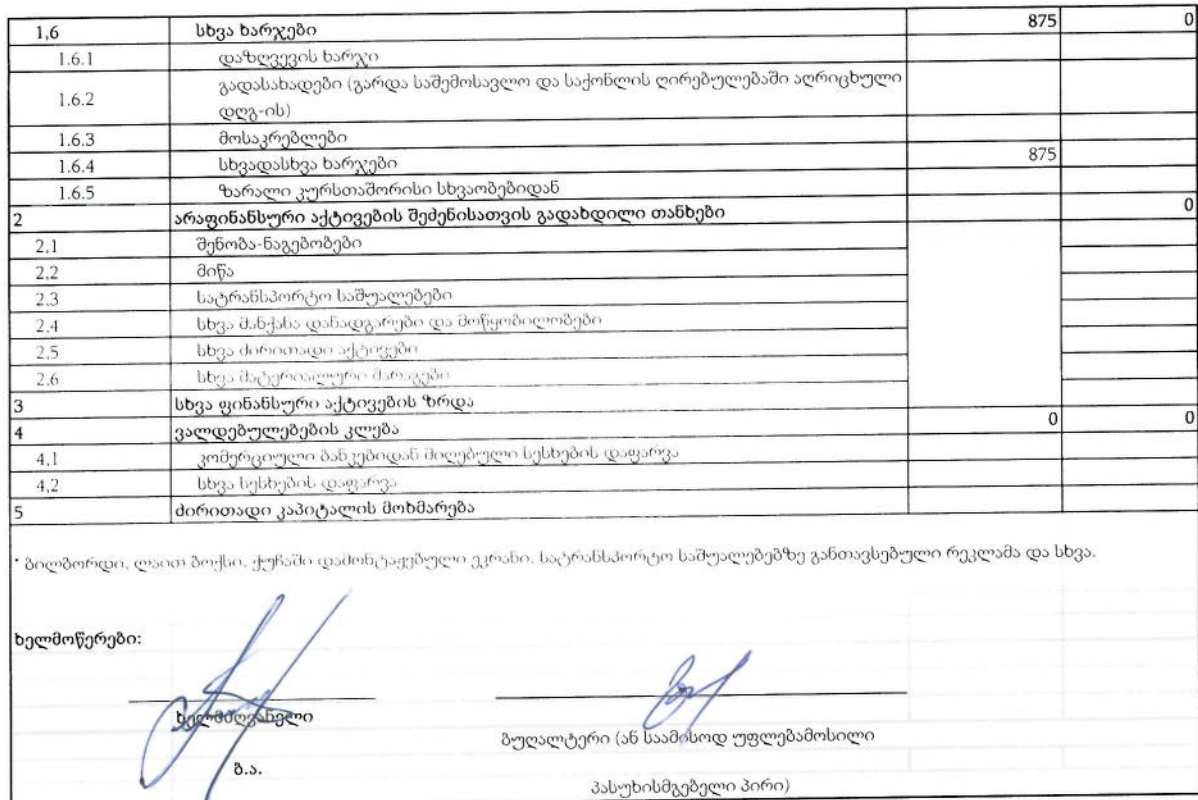 1,6 სხვა ხარჯები 875 0
1.6.1 დაზღვევის ხარჯი
1.6.2 გადასახადები (გარდა საშემოსავლო და საქონლის ღირებულებაში აღრიცხული
დღგ-ის)
1.6.3 მოსაკრებლები
1.6.4 სხვადასხვა ხარჯები 875
1.6.5 ზარალი კურსთაშორისი სხვაობებიდან
2 არაფინანსური აქტივების შეძენისათვის გადახდილი თანხები 0
2,1 შენობა-ნაგებობები
2,2 მიწა
2,3 სატრანსპორტო საშუალებები
2,4 სხვა მანქანა დანადგარები და მოწყობილობები
2,5 სხვა ძირითადი აქტივები
2,6 სხვა მატერიალური მარაგები
3 სხვა ფინანსური აქტივების ზრდა
4 ვალდებულებების კლება 0 0
4,1 კომერციული ბანკებიდან მიღებული სესხების დაფარვა
4,2 სხვა სესხების დაფარვა
5 ძირითადი კაპიტალის მოხმარება
* ბილბორდი, ლაით ბოქსი, ქუჩაში დამონტაჟებული ეკრანი, სატრანსპორტო საშუალებებზე განთავსებული რეკლამა და სხვა.
ხელმოწერები:
ხელმძღვანელი
ბუღალტერი (ან საამისოდ უფლებამოსილი
ბ.ა.
პასუხისმგებელი პირი)